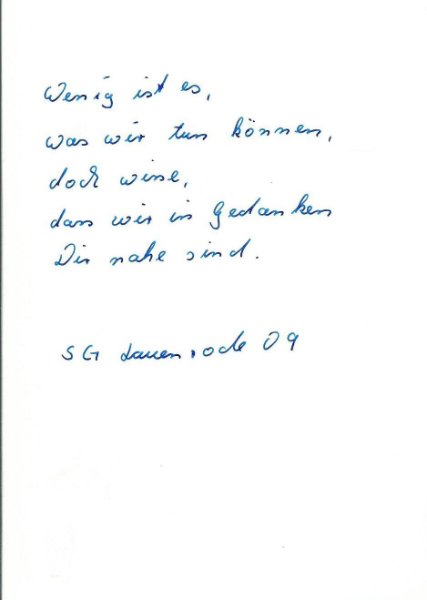 Wenig ist es,
was wir tun können,
doch wisse,
dass wir in Gedanken
Dir nahe sind.
SG Lauenrode 09